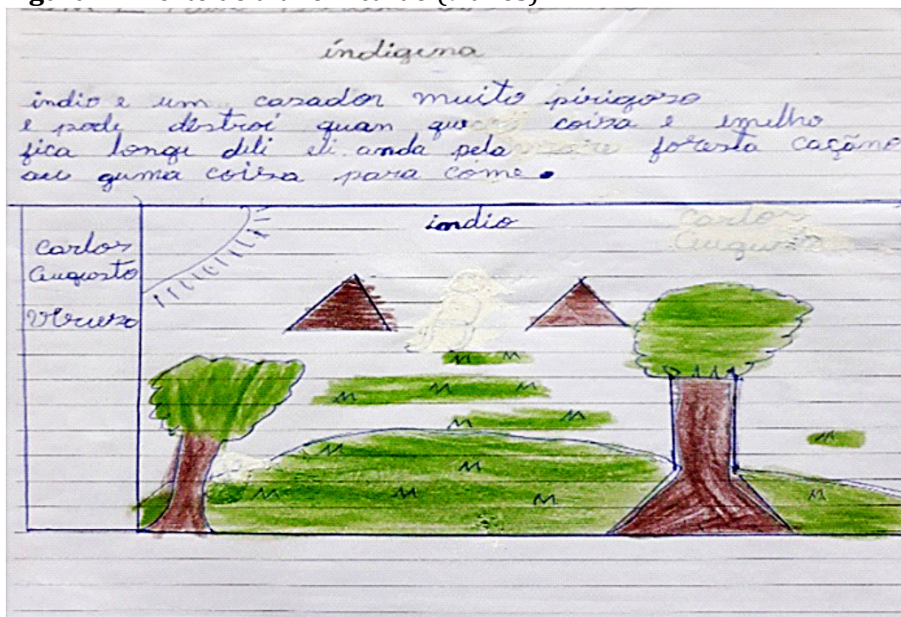 indígena
indio e um casador muito pirigozo
e pode distroi quan que coiza e imelho
fica longi deli eli anda pela foresta caçãno
au guma coiza para come.
indio
Carlos
Augusto
Carlos
Augusto